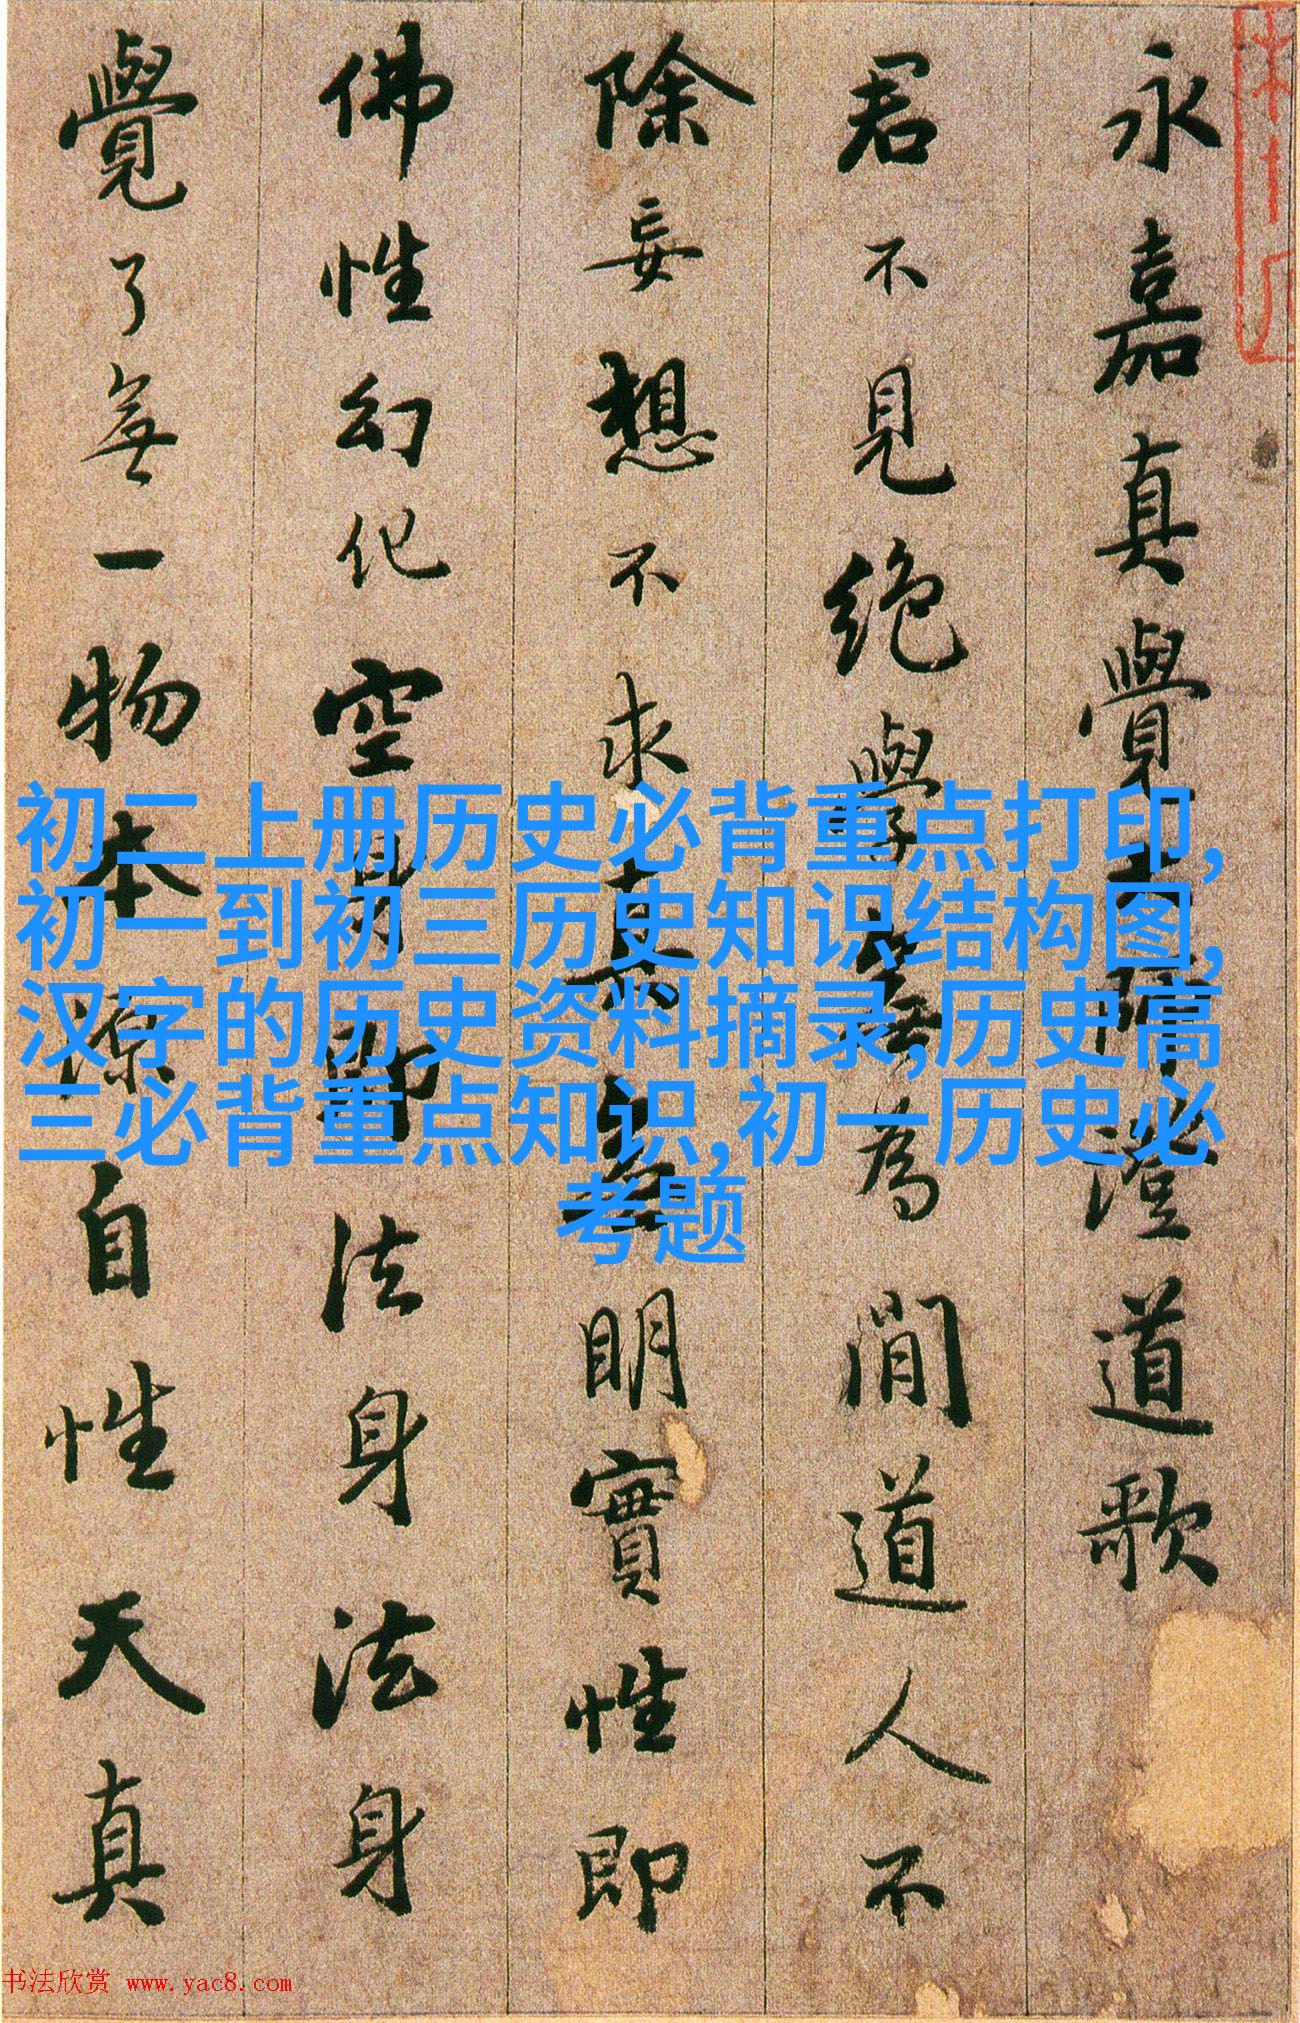 永嘉真覺大師證道歌
君不見絕學無為閒道人不
除妄想不求真無明實性即
佛性幻化空身即法身法身
覺了無一物本源自性天真
初二上册历史必背重点打印,
初一到初三历史知识结构图,
汉字的历史资料摘录,历史高
三必背重点知识,初一历史必
考题
书法欣赏 www.yac8.com